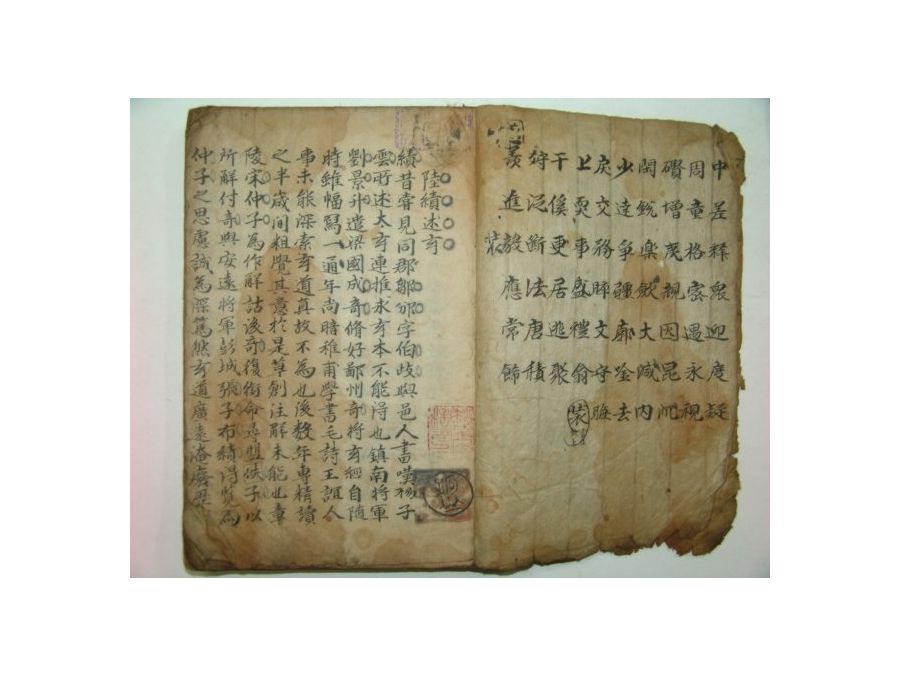 中差釋眾迎度疑
周童格密遇永視
礥增夷親因昆沉
閑銳樂斂大減內
少達爭彊廓唫去
戾交務睟文守晦
上耎事盛禮翕
干傒更居逃聚
狩從斷法唐積
羨進毅應常飾
裝
陸績述玄
績昔嘗見同郡鄒邠字伯岐與邑人書嘆揚子
雲所述太玄連推求玄本不能得也鎮南將軍
劉景升遣梁國成奇脩好鄙州奇將玄經自隨
時雖幅寫一通年尚暗稚甫學書毛詩王誼人
事未能深索玄道真故不為也後數年專精讀
之半歲間粗覺其意於是草創注解未能也章
陵宋仲子為作解詁後奇復銜命尋盟仲子以
所解付奇與安遠將軍彭城張子布績得覽焉
仲子之思慮誠為深篤然玄道廣遠淹廢歷